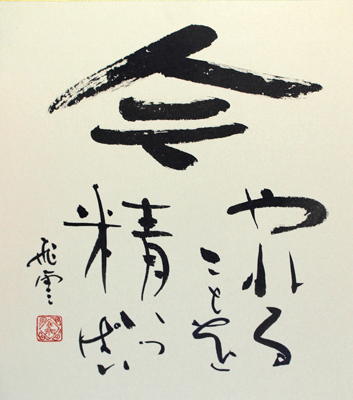 今
やれる
ことを
精いっぱい
飛雲